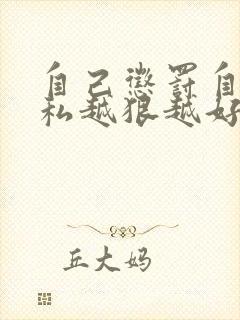 自己懲罰自
私越狠越好
丘大妈